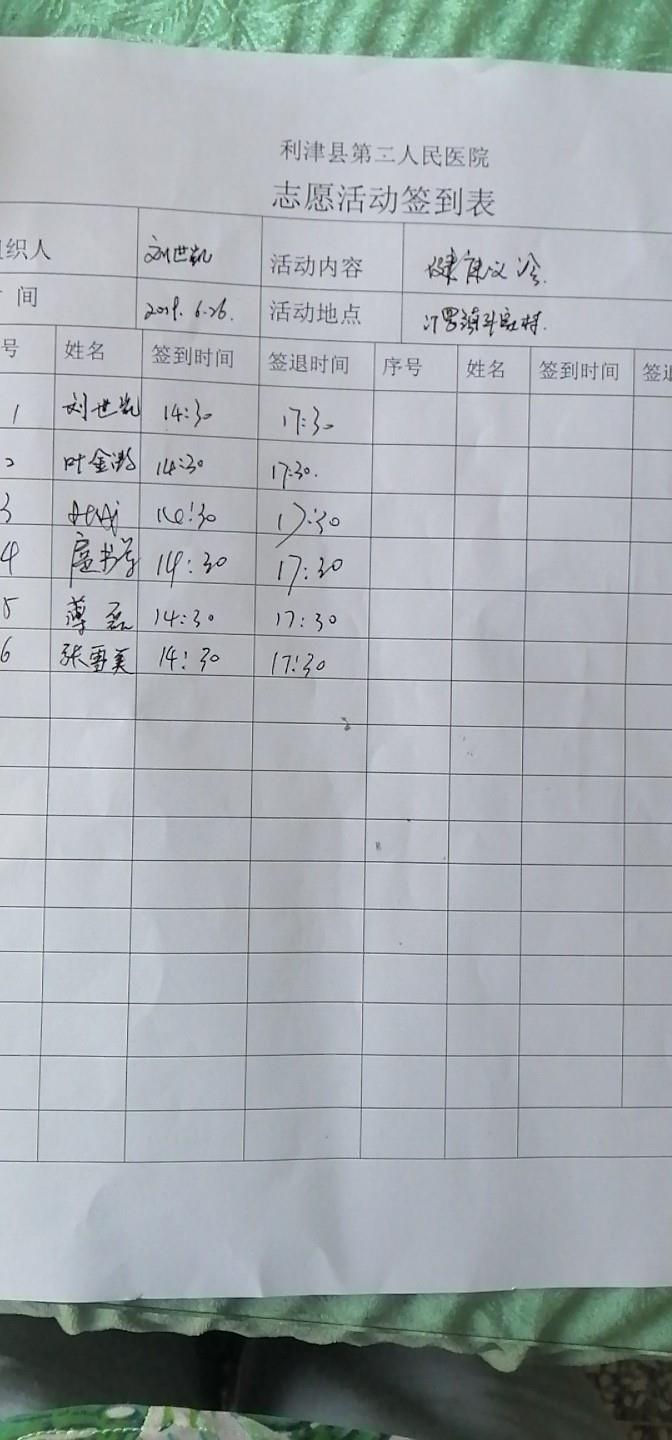 利津县第二人民医院
志愿活动签到表
组织人 刘世凯 活动内容 健康义诊.
时间 2019.6.26. 活动地点
号 姓名 签到时间 签退时间 序号 姓名 签到时间 签退
1 刘世凯 14:30 17:30
2 叶金 14:30 17:30.
3 14:30 17:30
4 14:30 17:30
5 薄磊 14:30 17:30
6 张雪美 14:30 17:30